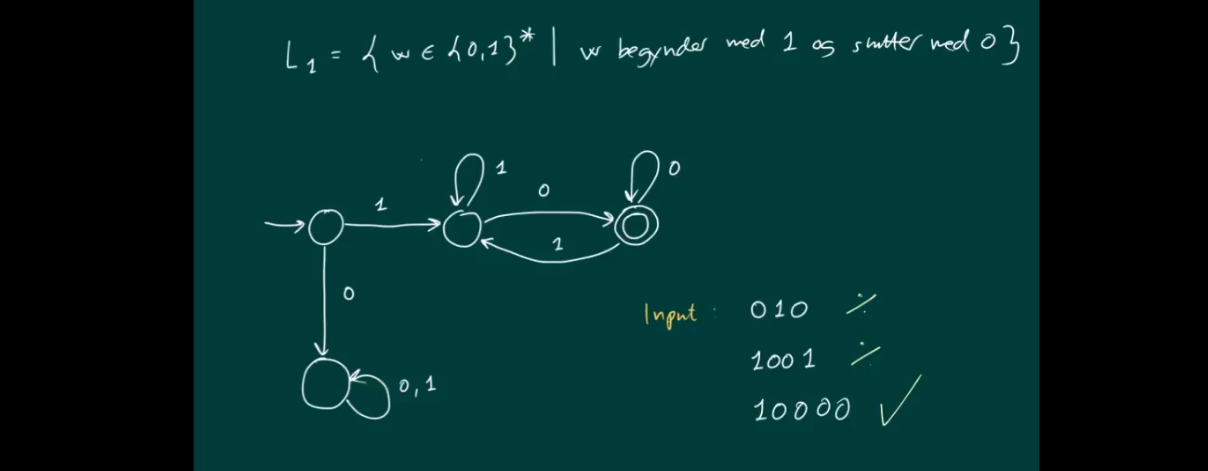 L₁ = { w ∈ {0,1}* | w begynder med 1 og slutter med 0}
1
0
1
0
1
0
0,1
Input : 010 ٪
1001 ٪
10000 ✓